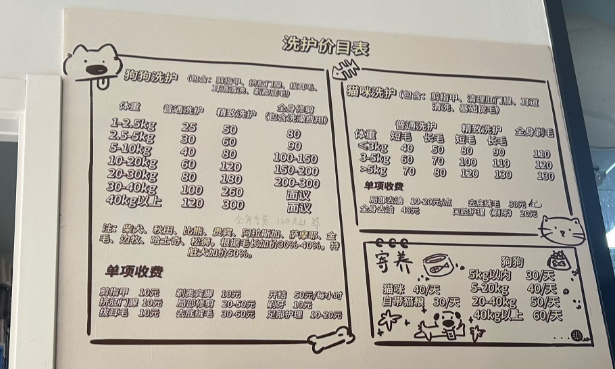 洗护价目表
狗狗洗护 (包含: 剪指甲、挤肛门腺、拔耳毛、
耳道清洗、剃脚底毛)
体重 普通洗护 精致洗护 全身修剪
(包含洗澡费用)
1-2.5kg 25 50 80
2.5-5kg 30 60 90
5-10kg 40 80 100-150
10-20kg 60 120 150-200
20-30kg 80 180 200-300
30-40kg 100 260 面议
40kg以上 120 300 面议
注: 柴犬、秋田、比熊、贵宾、阿拉斯加、萨摩耶、金
毛、边牧、哈士奇、松狮、根据毛长加价30%-40%。特
胜犬加价50%。
单项收费
剪指甲 10元 剃腹底脚 10元 开结 50元/每小时
挤肛门腺 10元 局部修剪 20-50元 刷牙 10元
拔耳毛 10元 去底绒毛 30-60元 足部护理 10-20元
猫咪洗护 (包含: 剪指甲、清理肛门腺、耳道
清洗、
普通洗护 精致洗护 全身剃毛
体重 短毛 长毛 短毛 长毛
≤3kg 40 50 80 90 110
3-5kg 60 70 100 110 120
>5kg 70 80 120 130 130
单项收费
局部去油 10-20元/点 去底绒毛 30元
全身去油 40元 20元
寄养
猫咪 40/天
自带猫粮 30/天
狗狗
5kg以内 30/天
5-20kg 40/天
20-40kg 50/天
40kg以上 60/天